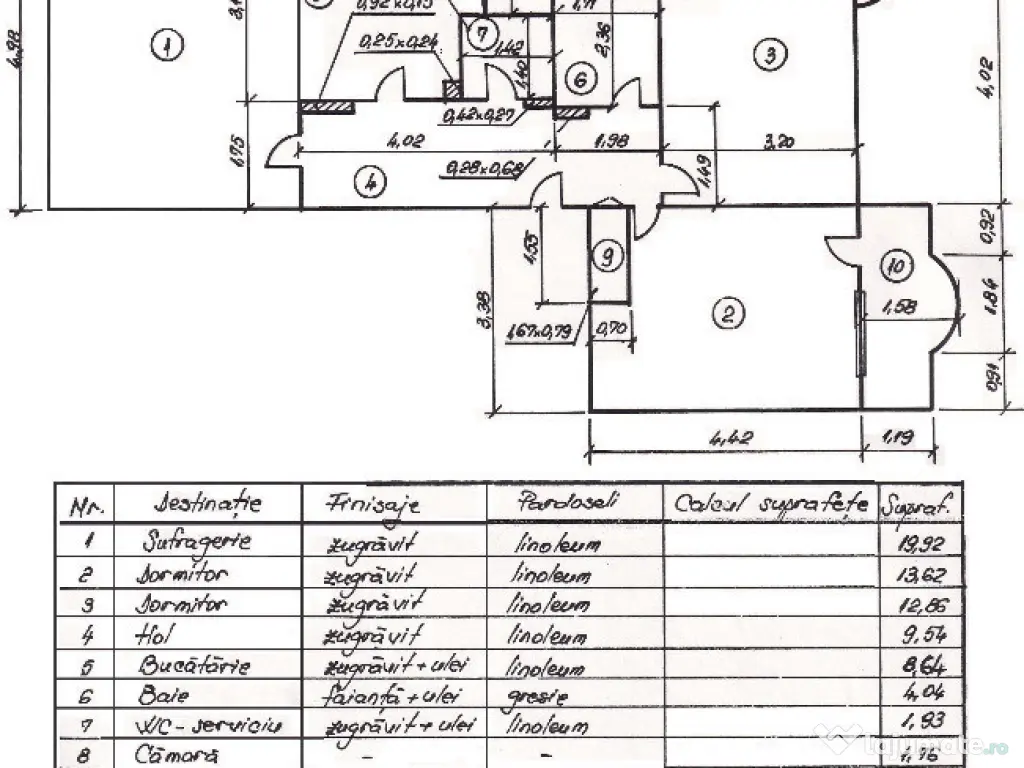 0,92x0,15
1,71
4,98
1
7
0,25x0,24
1,42
2,36
3
1,40
6
4,02
0,42x0,27
4,02
1,98
3,20
1,75
0,28x0,68
1,49
4
0,92
1,55
9
10
3,38
2
1,58
1,84
1,67x0,79
0,70
0,91
4,42
1,19
Nr. Destinație Finisaje Pardoseli Calcul suprafețe Supraf.
1 Sufragerie zugrăvit linoleum 19,92
2 Dormitor zugrăvit linoleum 13,62
3 Dormitor zugrăvit linoleum 12,86
4 Hol zugrăvit linoleum 9,54
5 Bucătărie zugrăvit + ulei linoleum 8,64
6 Baie faianță + ulei gresie 4,04
7 WC - serviciu zugrăvit + ulei linoleum 1,93
8 Cămară - - 1,16
lajumate.ro